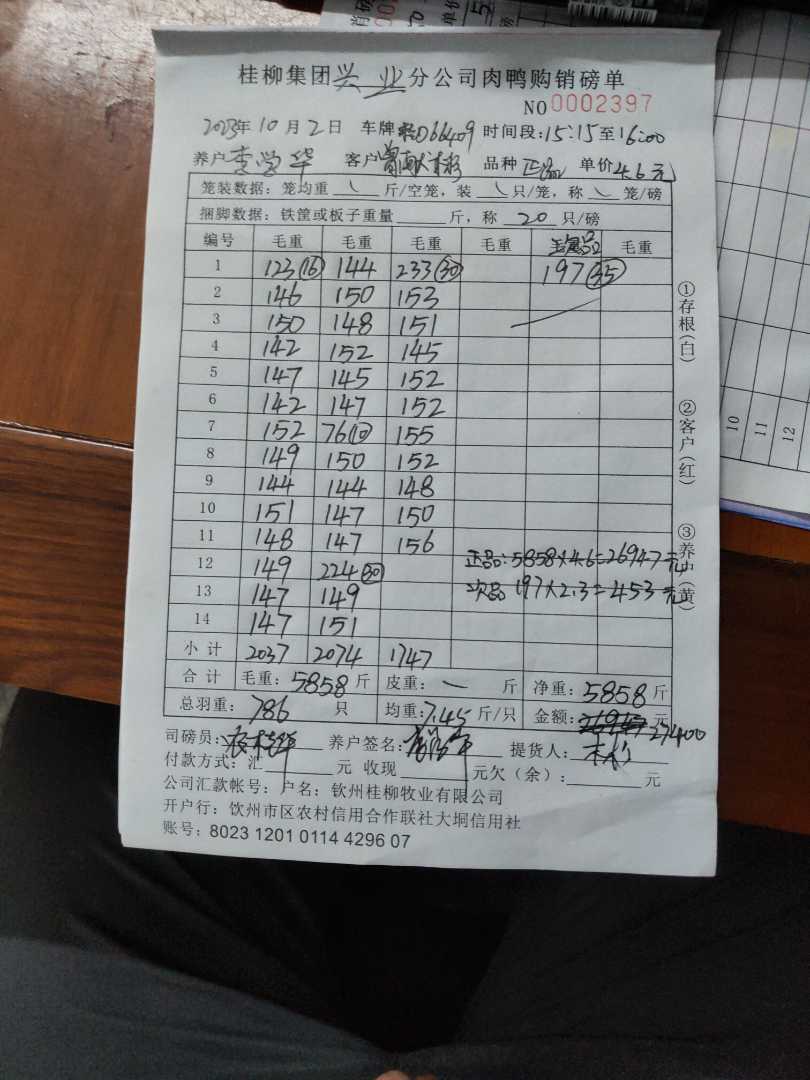 桂柳集团兴业分公司肉鸭购销磅单
NO 0002397
2023年10月2日 车牌 D66409 时间段:15:15至16:00
养户 李学华 客户 品种 正品 单价4.6元
笼装数据: 笼均重 \ 斤/空笼, 装 \ 只/笼, 称 \ 笼/磅
捆脚数据: 铁筐或板子重量 斤, 称 20 只/磅
编号 毛重 毛重 毛重 毛重 毛重
1 123(16) 144 233(30) 197(35)
2 146 150 153
3 150 148 151
4 142 152 145
5 147 145 152
6 142 147 152
7 152 76(10) 155
8 149 150 152
9 144 144 148
10 151 147 150
11 148 147 156
12 149 224(30) 正品:5858×4.6=26947元
13 147 149 次品 197×2.3=453元
14 147 151
小计 2037 2074 1747
合计 毛重:5858斤 皮重: — 斤 净重:5858斤
总羽重: 786 只 均重:7.45斤/只 金额: 元 27400
司磅员: 养户签名: 提货人:
付款方式: 汇 元 收现 元欠(余): 元
公司汇款帐号: 户名: 钦州桂柳牧业有限公司
开户行: 饮州市区农村信用合作联社大垌信用社
账号: 8023 1201 0114 4296 07
①存根(白) ②客户(红) ③养户(黄)
10
11
12